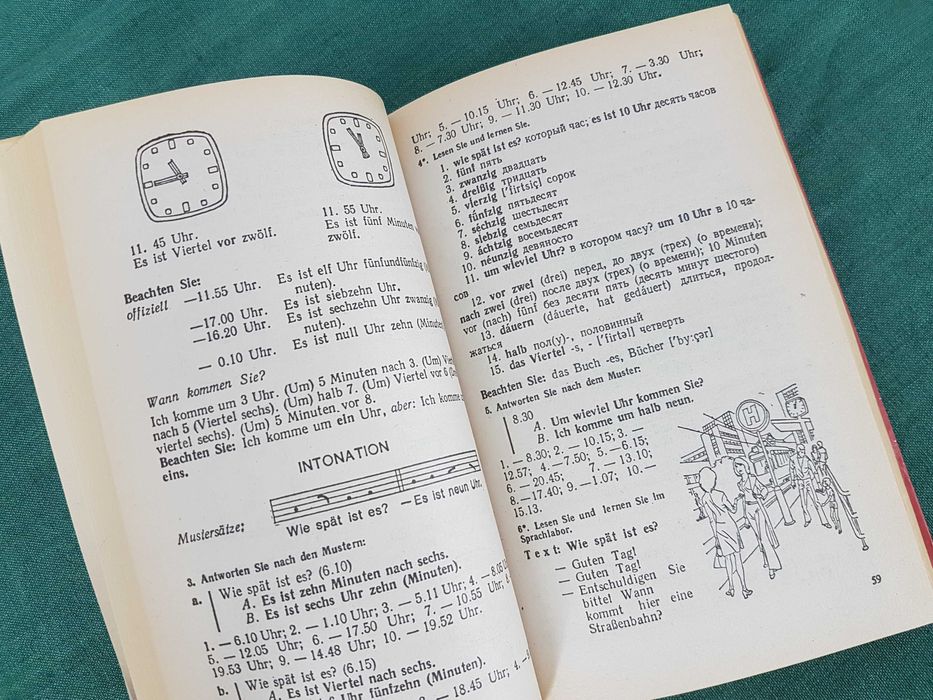 11. 45 Uhr.
Es ist Viertel vor zwölf.
11. 55 Uhr.
Es ist fünf Minuten
zwölf.
Beachten Sie:
offiziell —11.55 Uhr. Es ist elf Uhr fünfundfünfzig
nuten).
—17.00 Uhr. Es ist siebzehn Uhr.
—16.20 Uhr. Es ist sechzehn Uhr zwanzig
nuten).
— 0.10 Uhr. Es ist null Uhr zehn (Minuten
Wann kommen Sie?
Ich komme um 3 Uhr. (Um) 5 Minuten nach 3. (Um) Viertel
nach 5 (Viertel sechs). (Um) halb 7. (Um) Viertel vor 6
viertel sechs). (Um) 5 Minuten vor 8.
Beachten Sie: Ich komme um ein Uhr, aber: Ich komme
eins.
INTONATION
Mustersätze:
Wie spät ist es? —Es ist neun Uhr.
3. Antworten Sie nach den Mustern:
a. Wie spät ist es? (6.10)
A. Es ist zehn Minuten nach sechs.
B. Es ist sechs Uhr zehn (Minuten).
1. — 6.10 Uhr; 2. — 1.10 Uhr; 3. — 5.11 Uhr; 4. — 8.05
5. — 12.05 Uhr; 6. — 17.50 Uhr; 7. — 10.55 Uhr;
19.53 Uhr; 9. — 14.48 Uhr; 10. — 19.52 Uhr.
b. Wie spät ist es? (6.15)
A. Es ist Viertel nach sechs.
Uhr fünfzehn (Minuten).
— 18.45 Uhr; 4.
Uhr; 5. — 10.15 Uhr; 6. — 12.45 Uhr; 7. — 3.30 Uhr;
8. — 7.30 Uhr; 9. — 11.30 Uhr; 10. — 12.30 Uhr.
4*. Lesen Sie und lernen Sie.
1. wie spät ist es? который час; es ist 10 Uhr десять часов
2. fünf пять
3. zwanzig двадцать
4. dreißig тридцать
5. vierzig ['firtsiç] сорок
6. fünfzig пятьдесят
7. séchzig шестьдесят
8. siebzig семьдесят
9. áchtzig восемьдесят
10. néunzig девяносто
11. um wieviel Uhr? в котором часу? um 10 Uhr в 10 ча-
сов
12. vor zwei (drei) перед, до двух (трех) (о времени);
nach zwei (drei) после двух (трех) (о времени); 10 Minuten
vor (nach) fünf без десяти пять (десять минут шестого)
13. dáuern (dáuerte, hat gedáuert) длиться, продол-
жаться
14. halb пол(у)-, половинный
15. das Viertel -s, - ['firtəl] четверть
Beachten Sie: das Buch -es, Bücher ['by:çər]
5. Antworten Sie nach dem Muster:
8.30
A. Um wieviel Uhr kommen Sie?
B. Ich komme um halb neun.
1. — 8.30; 2. — 10.15; 3. —
12.57; 4. — 7.50; 5. — 6.15;
6. — 20.45; 7. — 13.10;
8. — 17.40; 9. — 1.07; 10. —
15.13.
6*. Lesen Sie und lernen Sie im
Sprachlabor.
Text: Wie spät ist es?
— Guten Tag!
— Guten Tag!
— Entschuldigen Sie
bitte! Wann
kommt hier eine
Straßenbahn?
H
59